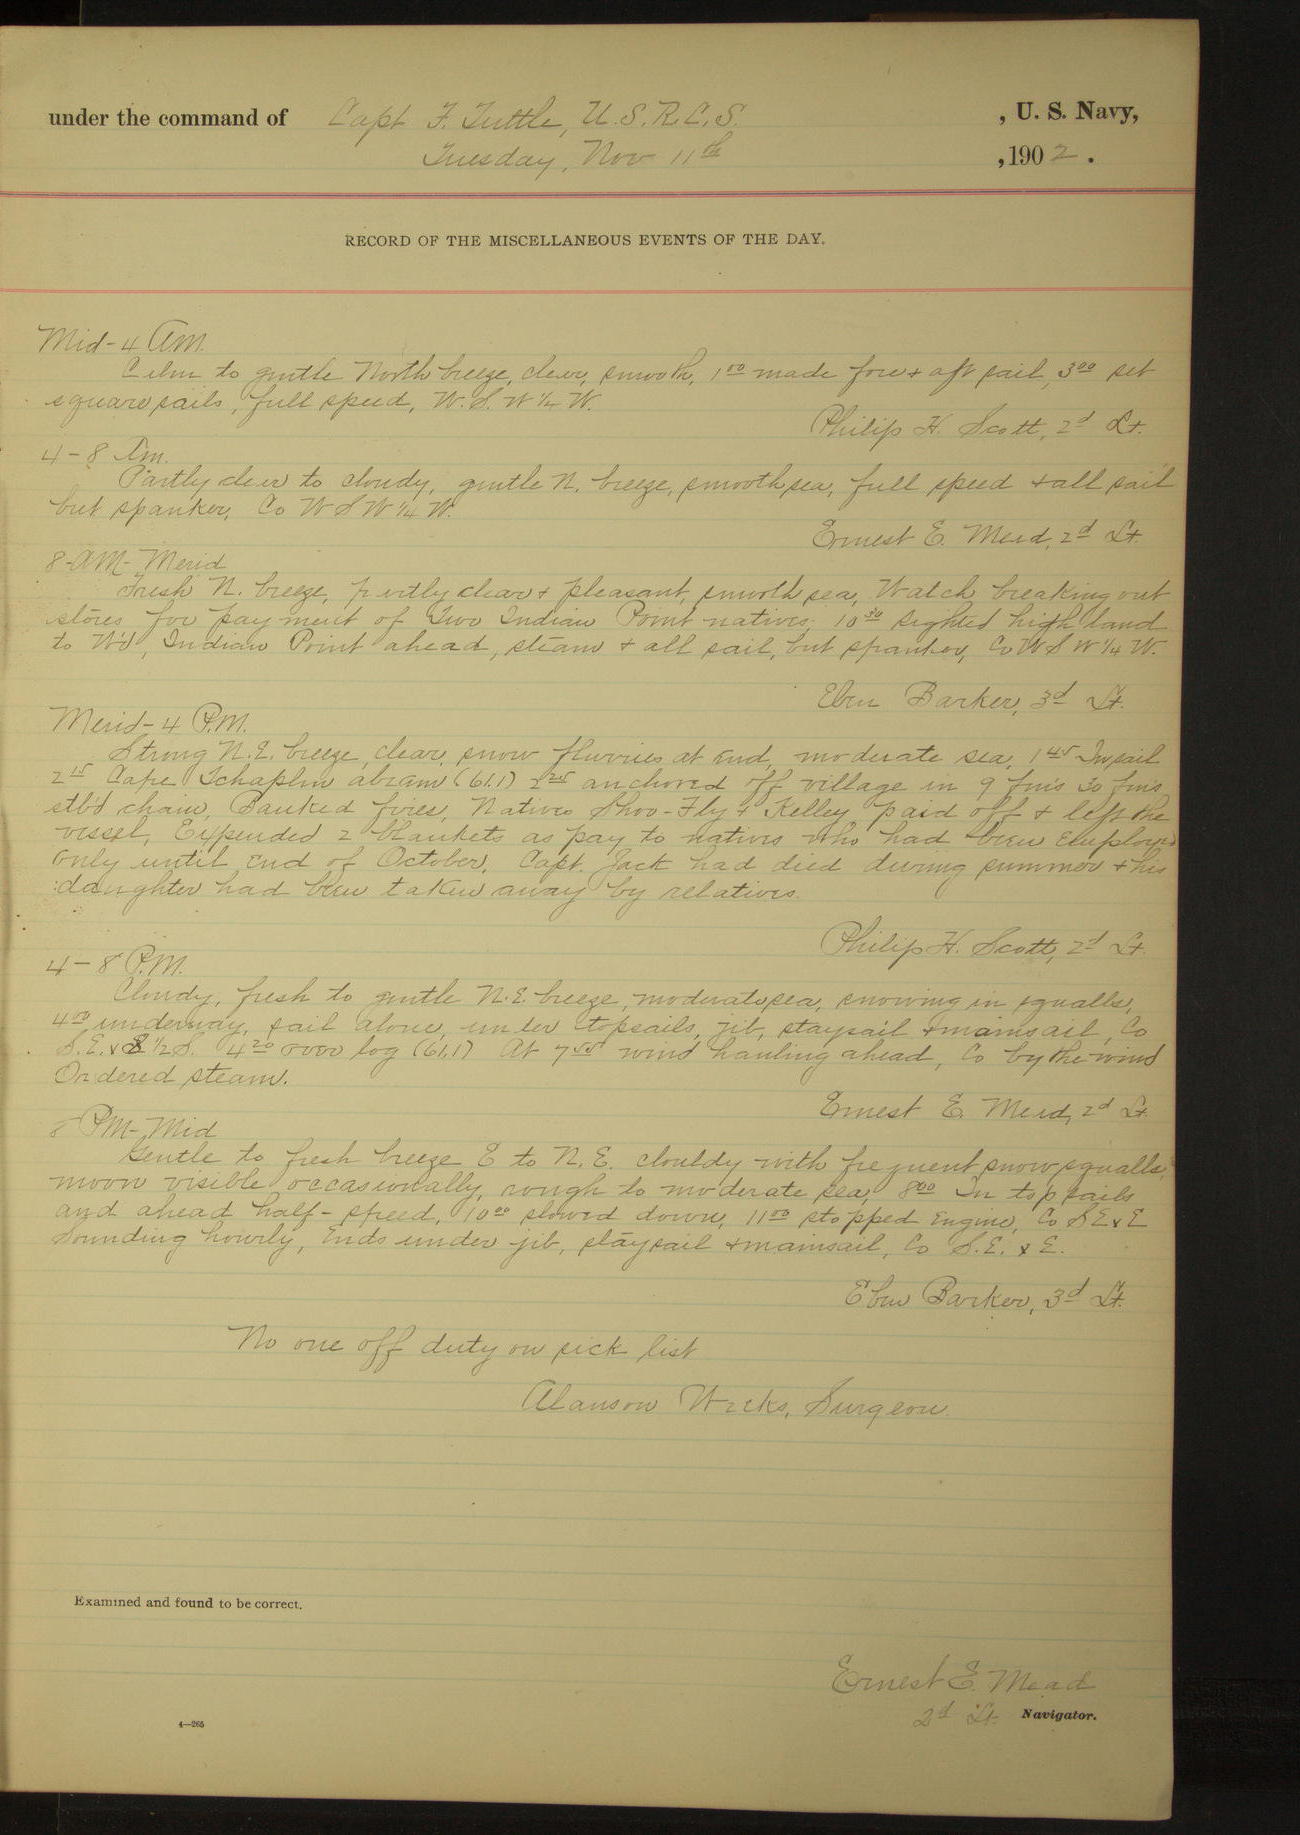 under the command of Capt F. Tuttle, U.S.R.C.S. , U. S. Navy,
Tuesday, Nov 11th , 1902.
RECORD OF THE MISCELLANEOUS EVENTS OF THE DAY.
Mid-4 AM.
Calm to gentle North breeze, clear, smooth, 1 00 made fore + aft sail, 3 00 set
square sails, full speed, W.S.W 1/4 W.
Philip H. Scott, 2d Lt.
4-8 Am.
Partly clear to cloudy, gentle N. breeze, smooth sea, full speed + all sail
but spanker, Co W S W 1/4 W.
Ernest E. Mead, 2d Lt.
8-AM-Merid
Fresh N. breeze, partly clear + pleasant, smooth sea, Watch breaking out
stores for payment of Two Indian Point natives, 10 30 sighted high land
to W'd, Indian Point ahead, steam + all sail, but spanker, Co W S W 1/4 W.
Eben Barker, 3d Lt.
Merid-4 P.M.
Strong N.E. breeze, clear, snow flurries at end, moderate sea, 1 45 In sail
2 15 Cape Tchaplin abeam (61.1) 2 25 anchored off village in 9 fm's 30 fm's
stb'd chain, Banked fires, Natives Shoo-Fly + Kelley paid off + left the
vessel, Expended 2 blankets as pay to natives who had been employed
only until end of October, Capt. Jack had died during summer + his
daughter had been taken away by relatives.
Philip H. Scott, 2d Lt.
4-8 P.M.
Cloudy, fresh to gentle N.E. breeze, moderate sea, snowing in squalls,
4 00 underway, sail alone, under topsails, jib, staysail + mainsail, Co
S.E. x S 1/2 S. 4 20 over log (61.1) At 7 55 wind hauling ahead, Co by the wind
Ordered steam.
Ernest E. Mead, 2d Lt.
8 PM-Mid
Gentle to fresh breeze E to N.E. clouldy with frequent snow squalls,
moon visible occasionally, rough to moderate sea, 8 00 In topsails
and ahead half-speed, 10 00 slowed down, 11 00 stopped Engine, Co S E x E
Sounding hourly, Ends under jib, staysail + mainsail, Co S.E. x E.
Eben Barker, 3d Lt.
No one off duty on sick list
Alanson Weeks, Surgeon.
Examined and found to be correct.
Ernest E. Mead
2d Lt. Navigator.
4—265